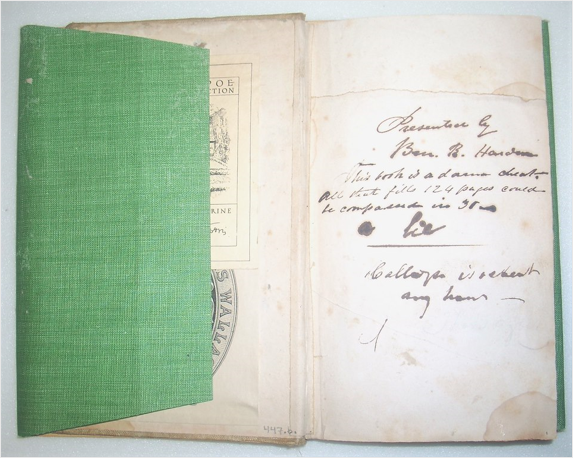 POE
CTION
RINE
S WALLA
447.6.
Presented by
Ben. R.
This book is a damn cheat
All that fills 124 pages could
be compassed in
a lie
is
any how